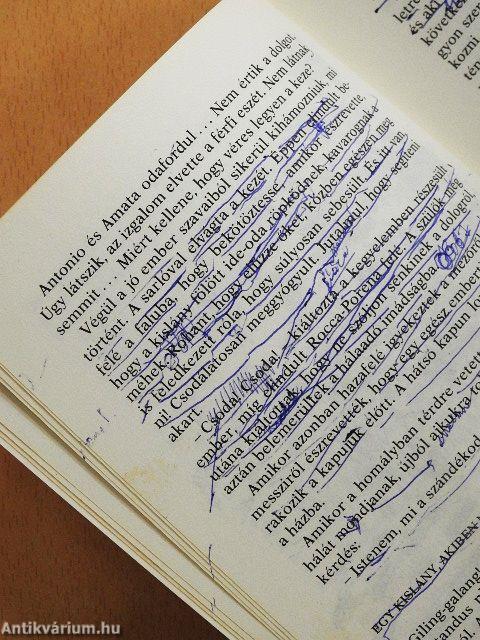 Antonio és Annata odafordul... Nem értik a dolgot.
Úgy látszik, az izgalom elvette a férfi eszét. Nem látnak
semmit... Miért kellene, hogy véres legyen a keze?
Végül a jó ember szavaiból sikerül kihámozniuk, mi
történt. A sarlóval elvágta a kezét. Éppen elindult be-
felé a faluba, hogy bekötöztesse, amikor észrevette,
hogy a kislány fölött ide-oda röpködnek, kavarognak a
méhek. Rohant, hogy elűzze őket. Közben egészen meg
is feledkezett róla, hogy súlyosan sebesült. És itt van,
ni! Csodálatosan meggyógyult, jutalmul, hogy segíteni
akart.
- Csoda! Csoda! - kiáltotta a kegyelemben részesült
ember, míg elindult Rocca Porena felé. A szülők még
utána kiáltottak, hogy ne szóljon senkinek a dologról,
aztán belemerültek a hálaadó imádságba.
Amikor azonban hazafelé igyekeztek a mezőről,
messziről észrevették, hogy egy egész ember
rakozik a kapujuk előtt. A hátsó kapun lo
a házba.
Amikor a homályban térdre vetett
hálát mondjanak, újból ajkukra to
kérdés.
- Istenem, mi a szándékod
EGY KISLÁNY, AKIBEN
Giling-galang
letre
és aki
követke
gyon szo
kozni
tén
Antikvárium.hu